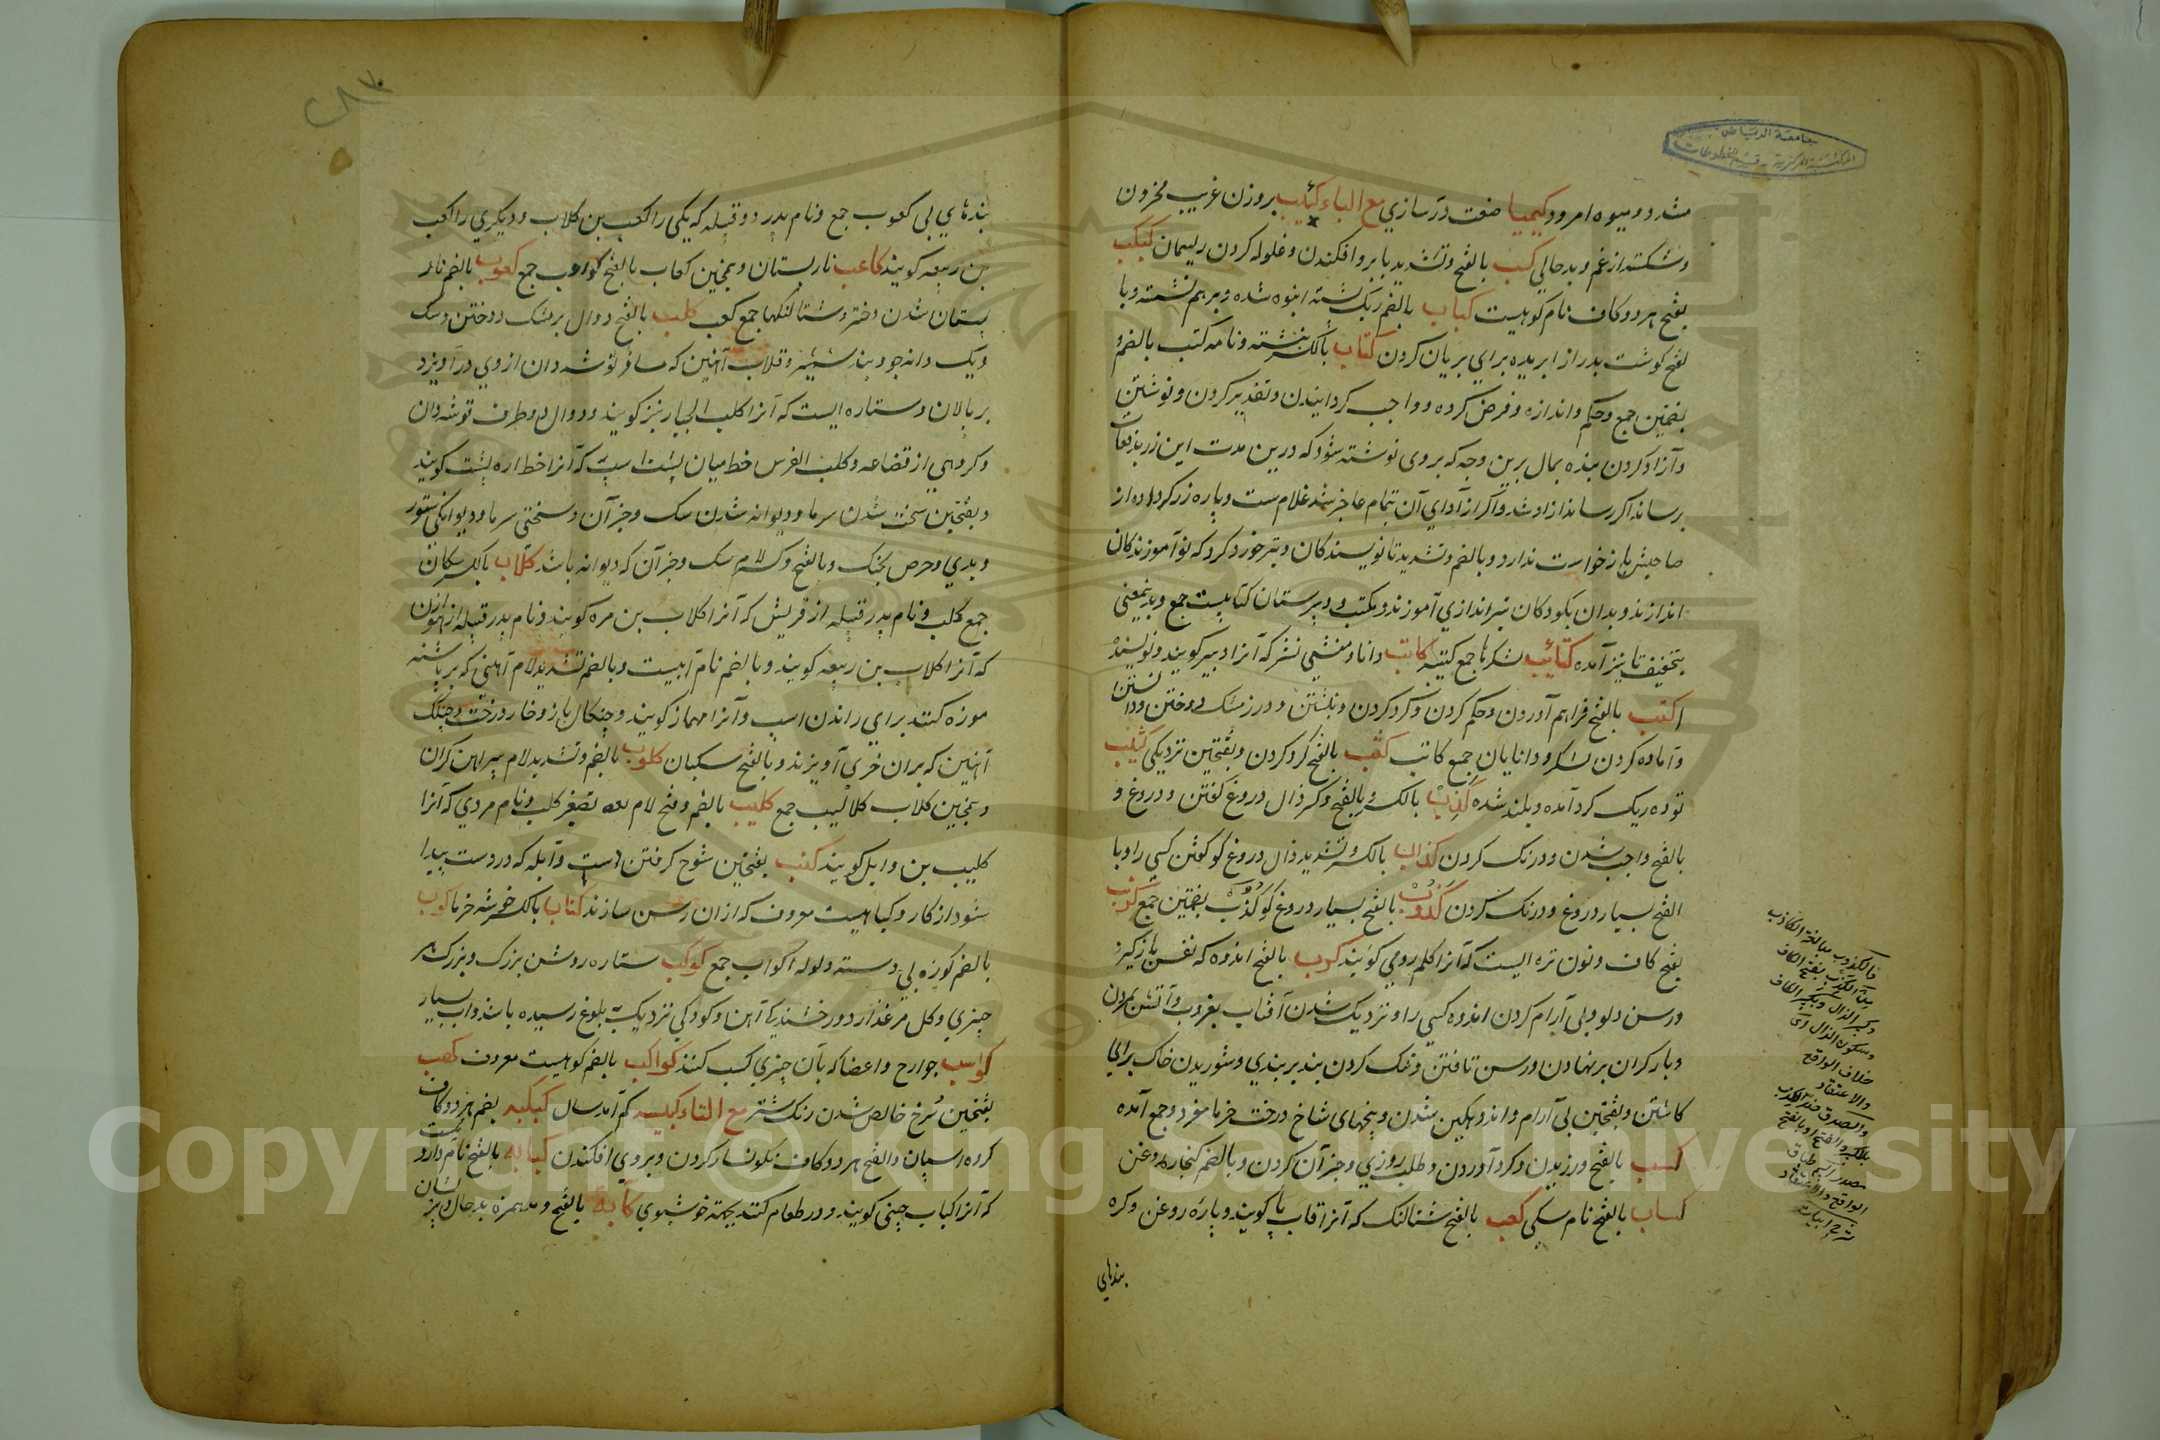 جامعة الرياض
المكتبة المركزية - قسم المخطوطات
مشدد و میوه امرود کیمیا صنعت زرسازی مع الباء کئیب بر وزن غریب محزون
و شکسته از غم و بدحالی کب بالفتح و تشدید با بر رو افکندن و غلوله کردن ریسمان کبکب
بفتح هر دو کاف نام کوهیست کباب بالضم ریک پشته انبوه شده و بر هم نشسته و با
لفتح کوشت بدرازا بریده برای بریان کردن کتاب بالکسر نبشته و نامه کتب بالضم و
بضمتین جمع و حکم و اندازه و فرض کرده و واجب کردانیدن و تقدیر کردن و نوشتن
و آزاد کردن بنده بمال برین وجه که بر وی نوشته شود که درین مدت این زر بدفعات
برساند اکر رساند ازاد شد و اکر از ادای آن تمام عاجز شد غلام ست و پاره زر که داده از
صاحبش باز خواست ندارد و بالضم و تشدید تا نویسندکان و تیر خورد کرد که نوآموزندکان
اندازند و بدان بکودکان تیراندازی آموزند و مکتب و دبیرستان کتاتیب جمع و بدینمعنی
بتخفیف تا نیز آمده کتائب لشکرها جمع کتیبه کاتب دانا و منشی نثر که آنرا دبیر کویند و نویسنده
کتب بالفتح فراهم آوردن و حکم کردن و کرد کردن و نبشتن و درز مشک دوختن و دانستن
و آماده کردن لشکر و دانایان جمع کاتب کثب بالفتح کرد کردن و بفتحتین نزدیکی کثیب
توده ریک کرد آمده و بلند شده کذب بالکسر و بالفتح و کسر ذال دروغ کفتن و دروغ و
بالفتح واجب شدن و درنک کردن کذاب بالکسر و تشدید ذال دروغ کو کفتن کسی را و با
الفتح بسیار دروغ و درنک کردن کذوب بالفتح بسیار دروغ کو کذب بضمتین جمع کرنب
بفتح کاف و نون تره ایست که آنرا کلم رومی کویند کرب بالفتح اندوه که نفس باز کیرد
و رسن دلو و بی آرام کردن اندوه کسی را و نزدیک شدن آفتاب بغروب و آتش بمردن
و بار کران بر نهادن و رسن تافتن و تنک کردن بند بر بندی و شوریدن خاک برای
کاشتن و بفتحتین بی آرام و اندوهکین شدن و بیخهای شاخ درخت خرما مفرد و جمع آمده
کسب بالفتح ورزیدن و کرد آوردن و طلب روزی و جز آن کردن و بالضم کنجاره روغن
کساب بالفتح نام سکی کعب بالفتح شتالنک که آنرا قاب پا کویند و پاره روغن و کره
بندهای
فالکذوب مبالغة الکاذب
من الکذب بفتح الکاف
وکسر الذال وبکسر الکاف
وسکون الذال
خلاف الواقع
والاعتقاد
والصدق ضد الکذب
بالکسر والفتح او بالفتح
مصدر
الواقع والاعتقاد
شرح ابیات
بندهای بی کعوب جمع و نام پدر دو قبیله که یکی را کعب بن کلاب و دیکری را کعب
بن ربیعه کویند کاعب نار پستان و همچنین کعاب بالفتح کواعب جمع کعوب بالضم نار
پستان شدن دختر و شتالنکها جمع کعب کلب بالفتح دوال بر مشک دوختن و سک
و یک دانه جو و بند شمشیر و قلاب آهنین که مسافر توشه دان از وی درآویزد
بر پالان و ستاره ایست که آنرا کلب الجبار نیز کویند و دوال دو طرف توشه دان
و کروهی از قضاعه و کلب الفرس خط میان پشت اسپ که آنرا خط اره پشت کویند
و بفتحتین سخت شدن سرما و دیوانه شدن سک و جز آن و سختی سرما و دیوانکی ستور
و بدی و حرص بجنک و بالفتح و کسر لام سک و جز آن که دیوانه باشد کلاب بالکسر سکان
جمع کلب و نام پدر قبیله از قریش که آنرا کلاب بن مره کویند و نام پدر قبیله از هوازن
که آنرا کلاب بن ربیعه کویند و بالضم نام آبیست و بالضم و تشدید لام آهنی که بر پاشنه
موزه کنند برای راندن اسپ و آنرا مهماز کویند و چنکال باز و خار درخت و چنکک
آهنین که بران خری آویزند و بالفتح سکبان کلوب بالضم و تشدید لام پیراهن کران
و همچنین کلاب کلالیب جمع کلیب بالضم و فتح لام تصغیر کلب و نام مردی که آنرا
کلیب بن وایل کویند کنب بفتحتین شوخ کرفتن دست و آبله که در دست پیدا
شود از کار و کیاهیست معروف که ازان رسن سازند کناب بالکسر خوشه خرما کوب
بالضم کوزه بی دسته و لوله اکواب جمع کوکب ستاره روشن بزرک و بزرک هر
چیزی و کل مرغزار و درخشندکی آهن و کودکی نزدیک به بلوغ رسیده باشد و آب بسیار
کواسب جوارح و اعضا که بآن چیزی کسب کنند کواکب بالضم کوهیست معروف کهب
بفتحتین سرخ خالص شدن رنک شتر مع التاء کبیسه کم آمد سال کبکبه بضم هر دو کاف
کروه اسپان و الفتح هر دو کاف نکونسار کردن و بر روی افکندن کبابه بالفتح نام دارو
که آنرا کباب چینی کویند و در طعام کنند بجهت خوشبوی کآبة بالفتح و مد همزه بدحال و